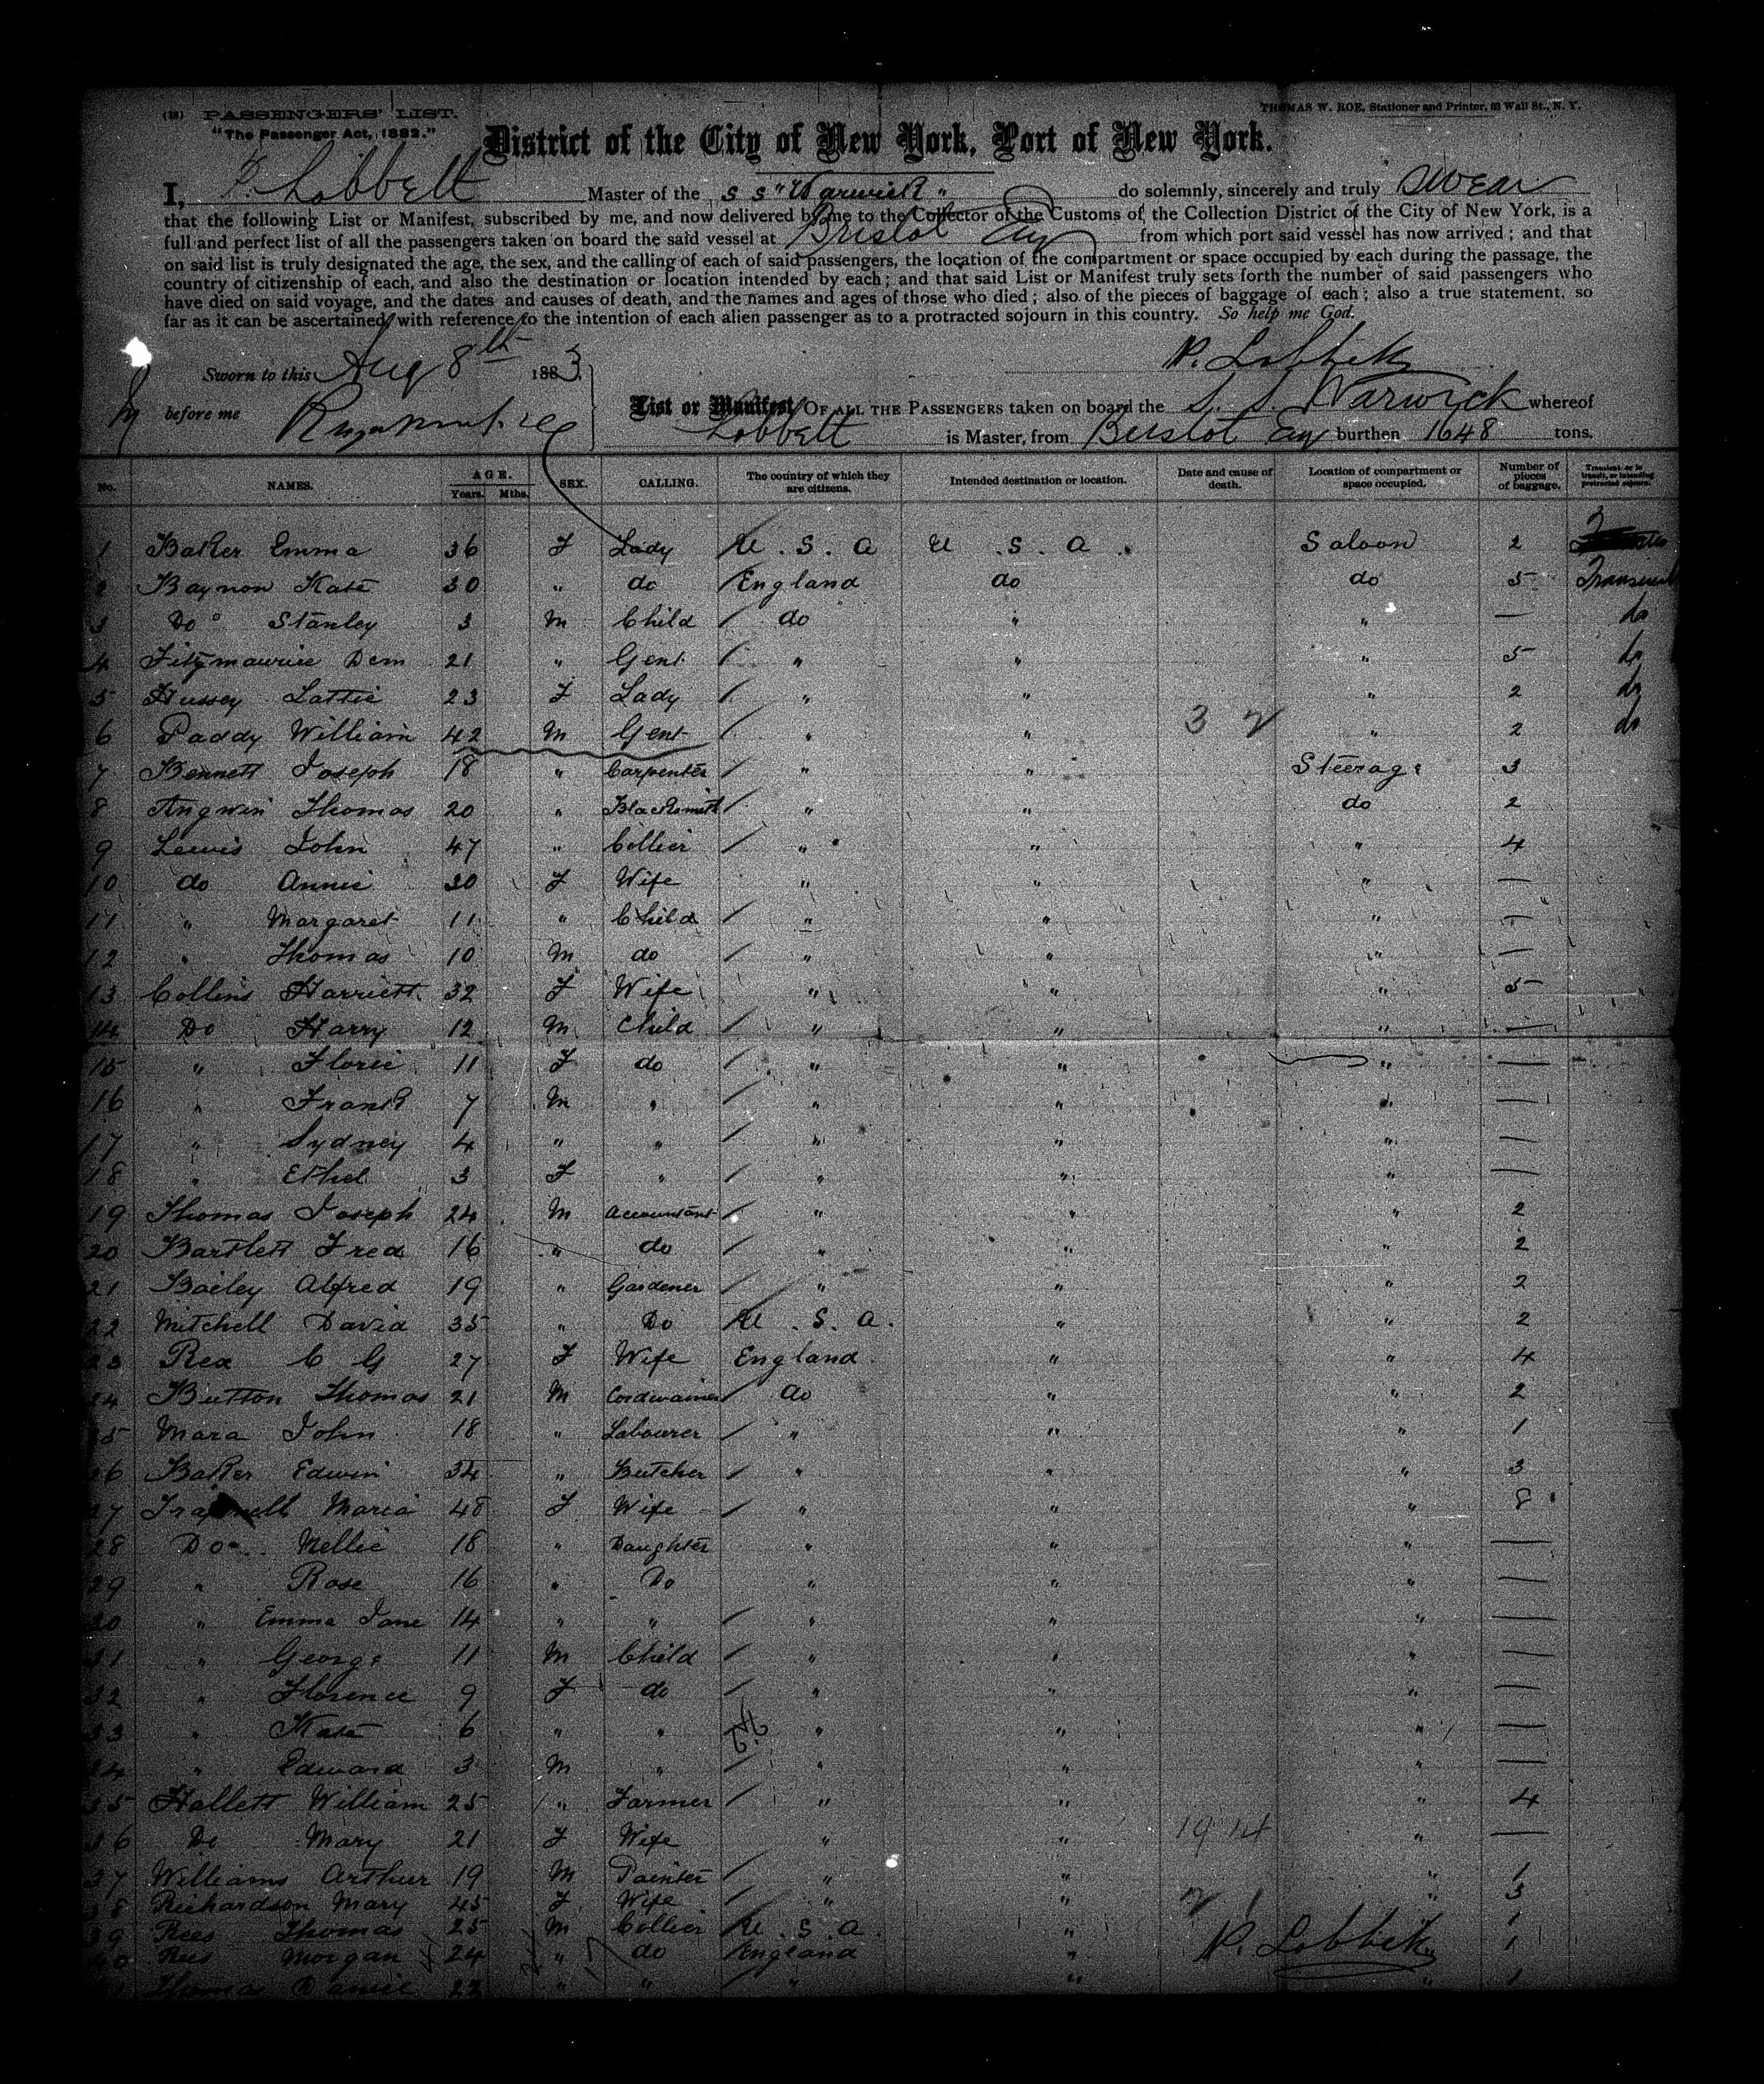 (18) PASSENGERS' LIST.
THOMAS W. ROE, Stationer and Printer, 63 Wall St., N. Y.
"The Passenger Act, 1882."
District of the City of New York, Port of New York.
I, Lobbett Master of the S S "Warwick" do solemnly, sincerely and truly swear
that the following List or Manifest, subscribed by me, and now delivered by me to the Collector of the Customs of the Collection District of the City of New York, is a
full and perfect list of all the passengers taken on board the said vessel at Bristol Eng from which port said vessel has now arrived; and that
on said list is truly designated the age, the sex, and the calling of each of said passengers, the location of the compartment or space occupied by each during the passage, the
country of citizenship of each, and also the destination or location intended by each; and that said List or Manifest truly sets forth the number of said passengers who
have died on said voyage, and the dates and causes of death, and the names and ages of those who died; also of the pieces of baggage of each; also a true statement, so
far as it can be ascertained, with reference to the intention of each alien passenger as to a protracted sojourn in this country. So help me God.
Sworn to this Aug 8th 1883
before me
List or Manifest OF ALL THE PASSENGERS taken on board the S. S. Warwick whereof
Lobbett is Master, from Bristol Eng burthen 1648 tons.
No. NAMES. AGE. Years. Mths. SEX. CALLING. The country of which they are citizens. Intended destination or location. Date and cause of death. Location of compartment or space occupied. Number of pieces of baggage. Transient or in transit, or intending protracted sojourn.
1 Baker Emma 36 F Lady U.S.A U.S.A. Saloon 2
2 Baynon Kate 30 " do England do do 5 Transient
3 Do Stanley 3 M Child do " " — do
4 Fitzmaurice Dem 21 " Gent " " " 5 do
5 Hussey Lattie 23 F Lady " " " 2 do
6 Paddy William 42 M Gent " " " 2 do
7 Bennett Joseph 18 " Carpenter " " Steerage 3
8 Angwin Thomas 20 " Blacksmith " " do 2
9 Lewis John 47 " Collier " " " 4
10 do Annie 30 F Wife " " " —
11 " Margaret 11 " Child " " " —
12 " Thomas 10 M do " " " —
13 Collins Harriett 32 F Wife " " " 5
14 Do Harry 12 M Child " " " —
15 " Florie 11 F do " " " —
16 " Frank 7 M " " " " —
17 " Sydney 4 " " " " " —
18 " Ethel 3 F " " " " —
19 Thomas Joseph 24 M Accountant " " " 2
20 Bartlett Fred 16 " do " " " 2
21 Bailey Alfred 19 " Gardener " " " 2
22 Mitchell David 35 " Do U.S.A. " " 2
23 Rex C G 27 F Wife England " " 4
24 Button Thomas 21 M Cordwainer do " " 2
25 Mara John 18 " Labourer " " " 1
26 Baker Edwin 34 " Butcher " " " 3
27 Maria 48 F Wife " " " 8
28 Do Nellie 18 " Daughter " " " —
29 " Rose 16 " Do " " " —
30 " Emma Jane 14 " " " " " —
31 " George 11 M Child " " " —
32 " Florence 9 F do " " " —
33 " Kate 6 " " " " " —
34 " Edward 3 M " " " " —
35 Hallett William 25 " Farmer " " " 4
36 Do Mary 21 F Wife " " " —
37 Williams Arthur 19 M Painter " " " 1
38 Richardson Mary 45 F Wife " " " 3
39 Rees Thomas 25 M Collier U.S.A. " 1
40 Rees Morgan 24 " do England " 1
Thomas Daniel 23 " " " " " 1